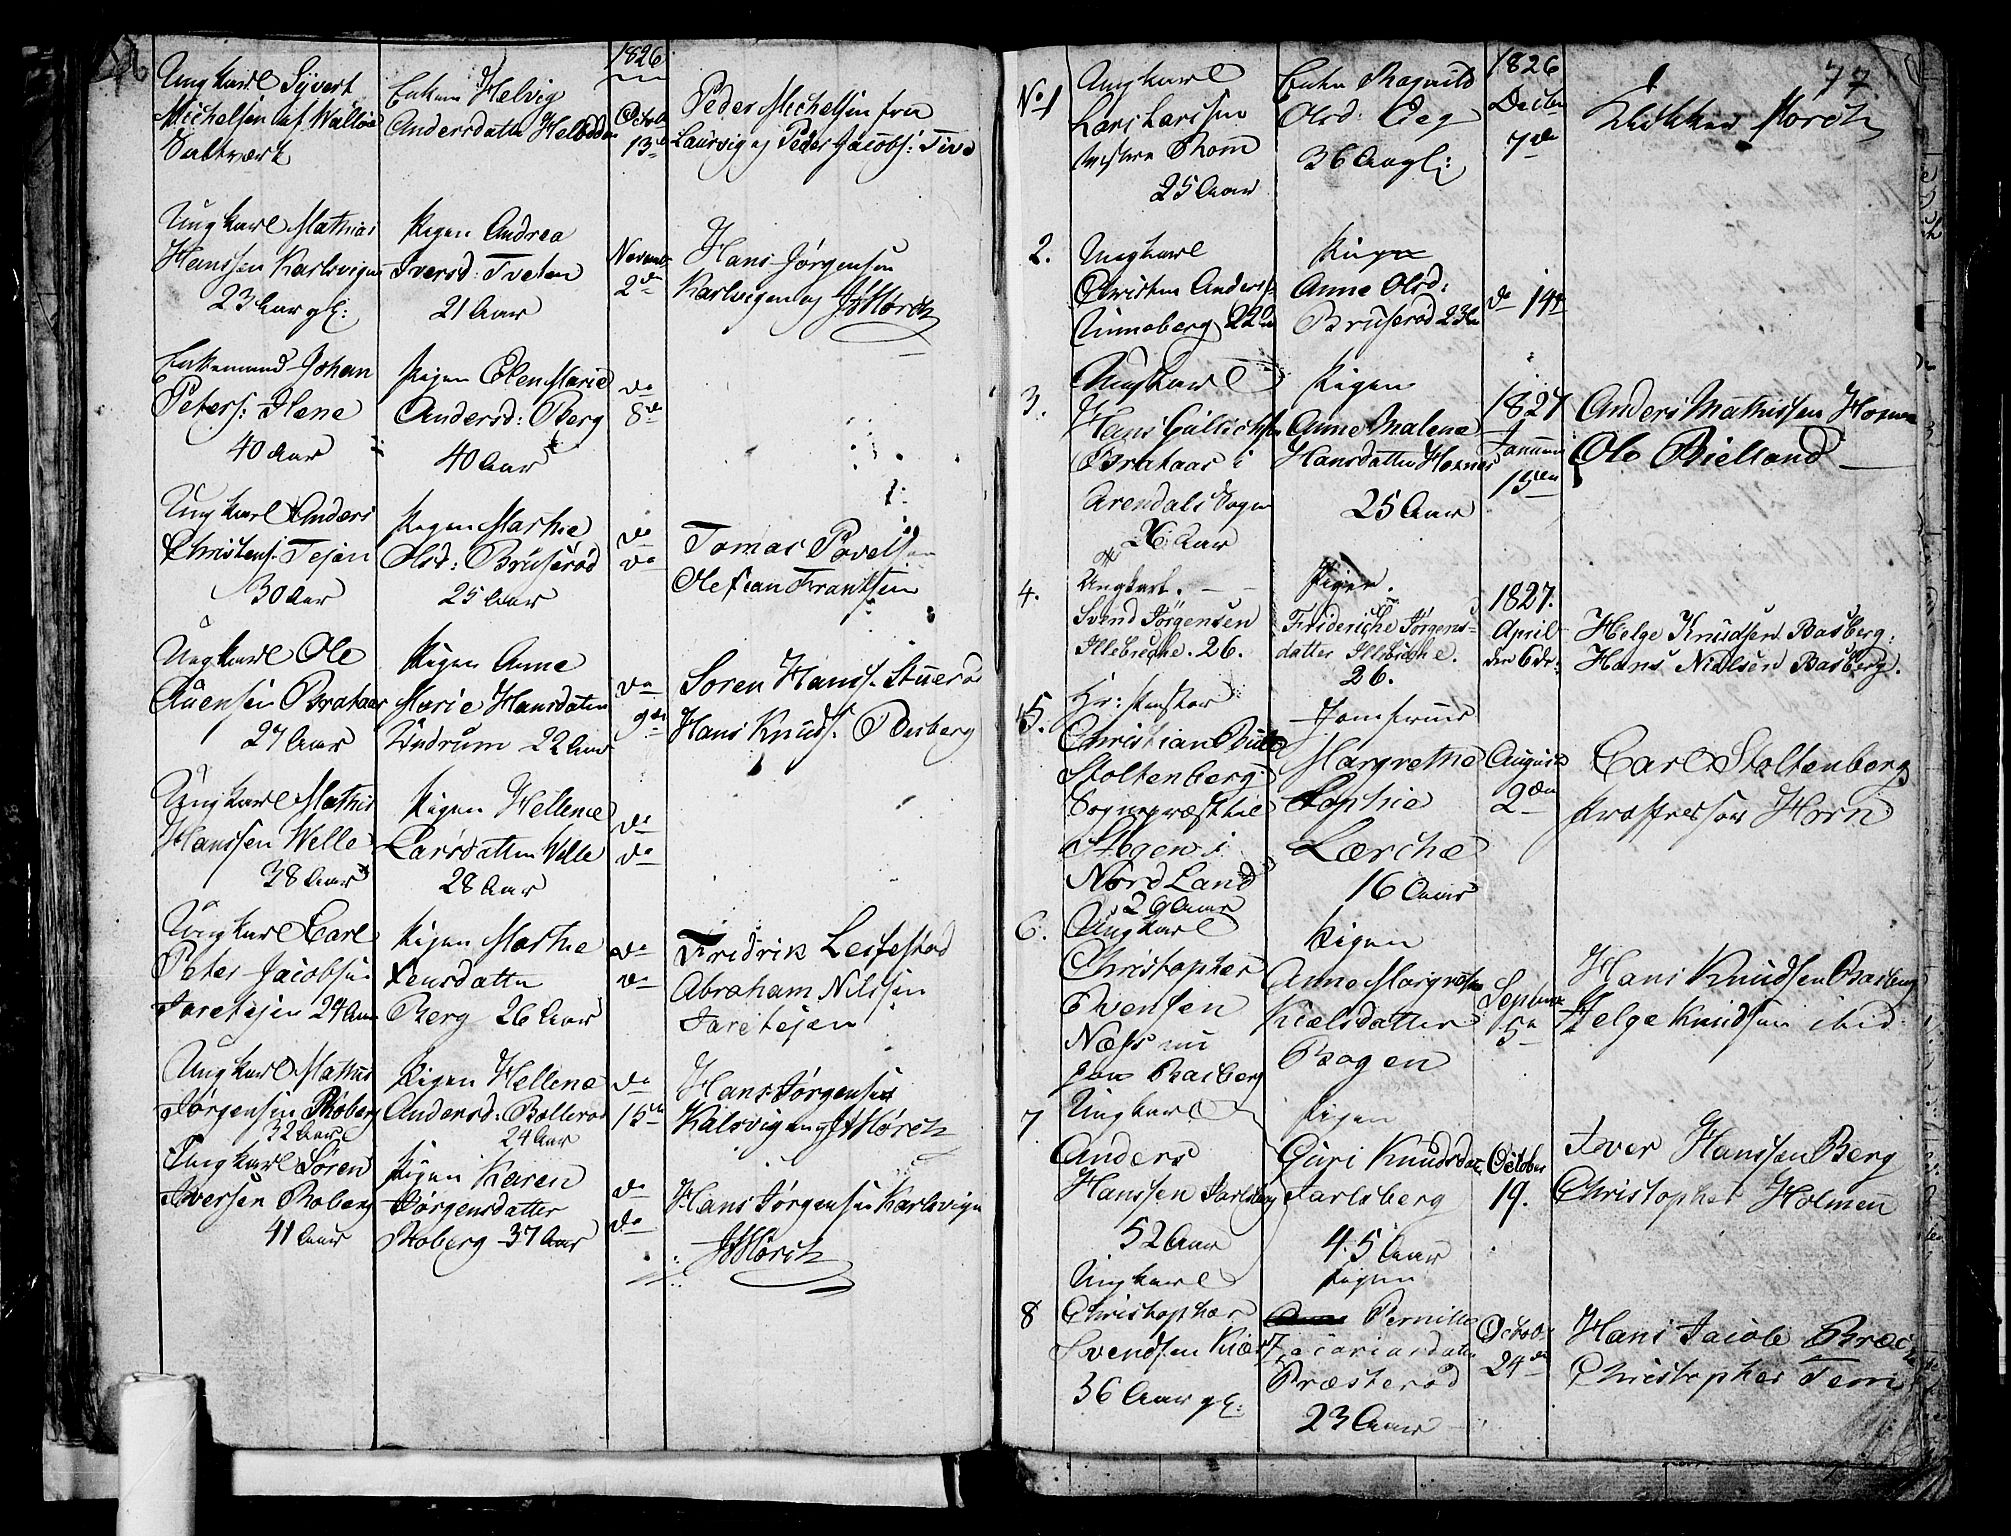 1826
Ungkarl Syvert
Michelsen af Walløe
Saltværk
Enken Helvig
Andersdatter
Octob
13de
Peder Michelsen fra
Laurvig og Peder Jacobs:
Ungkarl Mathias
Hanssen Karlsvigen
23 Aar gl:
Pigen Andrea
Iversd: Tveten
21 Aar
Novemb
2den
Hans Jørgensen
Karlsvigen og JMørch
Enkemand Johan
Peters: Ilene
40 Aar
Pigen Elen Marie
Andersd: Berg
40 Aar
do
8de
Ungkarl Anders
Christens. Tejen
30 Aar
Pigen Marthe
Olsd: Bruserød
25 Aar
do
do
Tomas Povelsen
Ole Frantsen
Ungkarl Ole
Auensen Brataas
27 Aar
Pigen Anne
Marie Hansdatter
Undrum 22 Aar
do
9de
Søren Hans. Stuerød
Hans Knuds. Basberg
Ungkarl Mathis
Hanssen Welle
38 Aar
Pigen Hellene
Larsdatter Welle
28 Aar
do
do
Ungkarl Carl
Peter Jacobsen
Jaretejen 24 Aar
Pigen Marthe
Jensdatter
Berg 26 Aar
do
do
Fridrik Leifestad
Abraham Nilssen
Jaretejen
Ungkarl Mathis
Jørgensen Roberg
32 Aar
Pigen Hellene
Andersd: Bollerød
24 Aar
do
15de
Hans Jørgensen
Kalsvig og JMørch
Ungkarl Søren
Iversen Roberg
41 Aar
Pigen Karen
Jørgensdatter
Roberg 37 Aar
do
do
Hans Jørgensen Karlsvigen
JMørch
77
No 1
Ungkarl
Lars Larssen
vestre Rom
25 Aar
Enken Ragnild
Olsd: Eeg
36 Aar gl:
1826
Decbr
7de
Klokker Mørch
2.
Ungkarl
Christen Anders:
Unneberg 22
Pigen
Anne Olsd:
Bruserød 23
do 14de
3.
Ungkarl
Hans
Brataas i
Arendals Sogn
26 Aar
Pigen
Anne Malene
Hansdatter Hornes
25 Aar
1827
Januari
15den
Anders Mathissen
Ole Bielland
4.
Ungkarl.
Svend Jørgensen
Illebrekke. 26.
Pigen.
Frideriche Jørgens-
datter Illebrekke.
26.
1827.
April
den 6te.
Helge Knudsen Basberg.
Hans Nielsen Basberg.
5.
Hr: Pastor
Christian
Stoltenberg
Sognepræst til
Stegen i
Nordland
29 Aar
Jomfrue
Margrethe
Sophie
Lærche
16 Aar
August
2den
Carl Stoltenberg
Proffessor Horn
6.
Ungkarl
Christopher
Evensen
Næss nu
paa Basberg
Pigen
Anne Margrethe
Kielsdatter
Bogen
Septbr
5te
Hans Knudsen Basberg
Helge Knudsen ibid:
7
Ungkarl
Anders
Hanssen Jarlsberg
52 Aar
Pigen
Guri Knudsdat.
Jarlsberg
45 Aar
October
19.
Iver Hanssen Berg
Christopher Holmen
8
Ungkarl
Christopher
Svendsen Kiær
36 Aar gl:
Pigen
Pernille
Zacariasdatter
Præsterød
23 Aar
Octob:
24de
Hans Jacob
Christopher